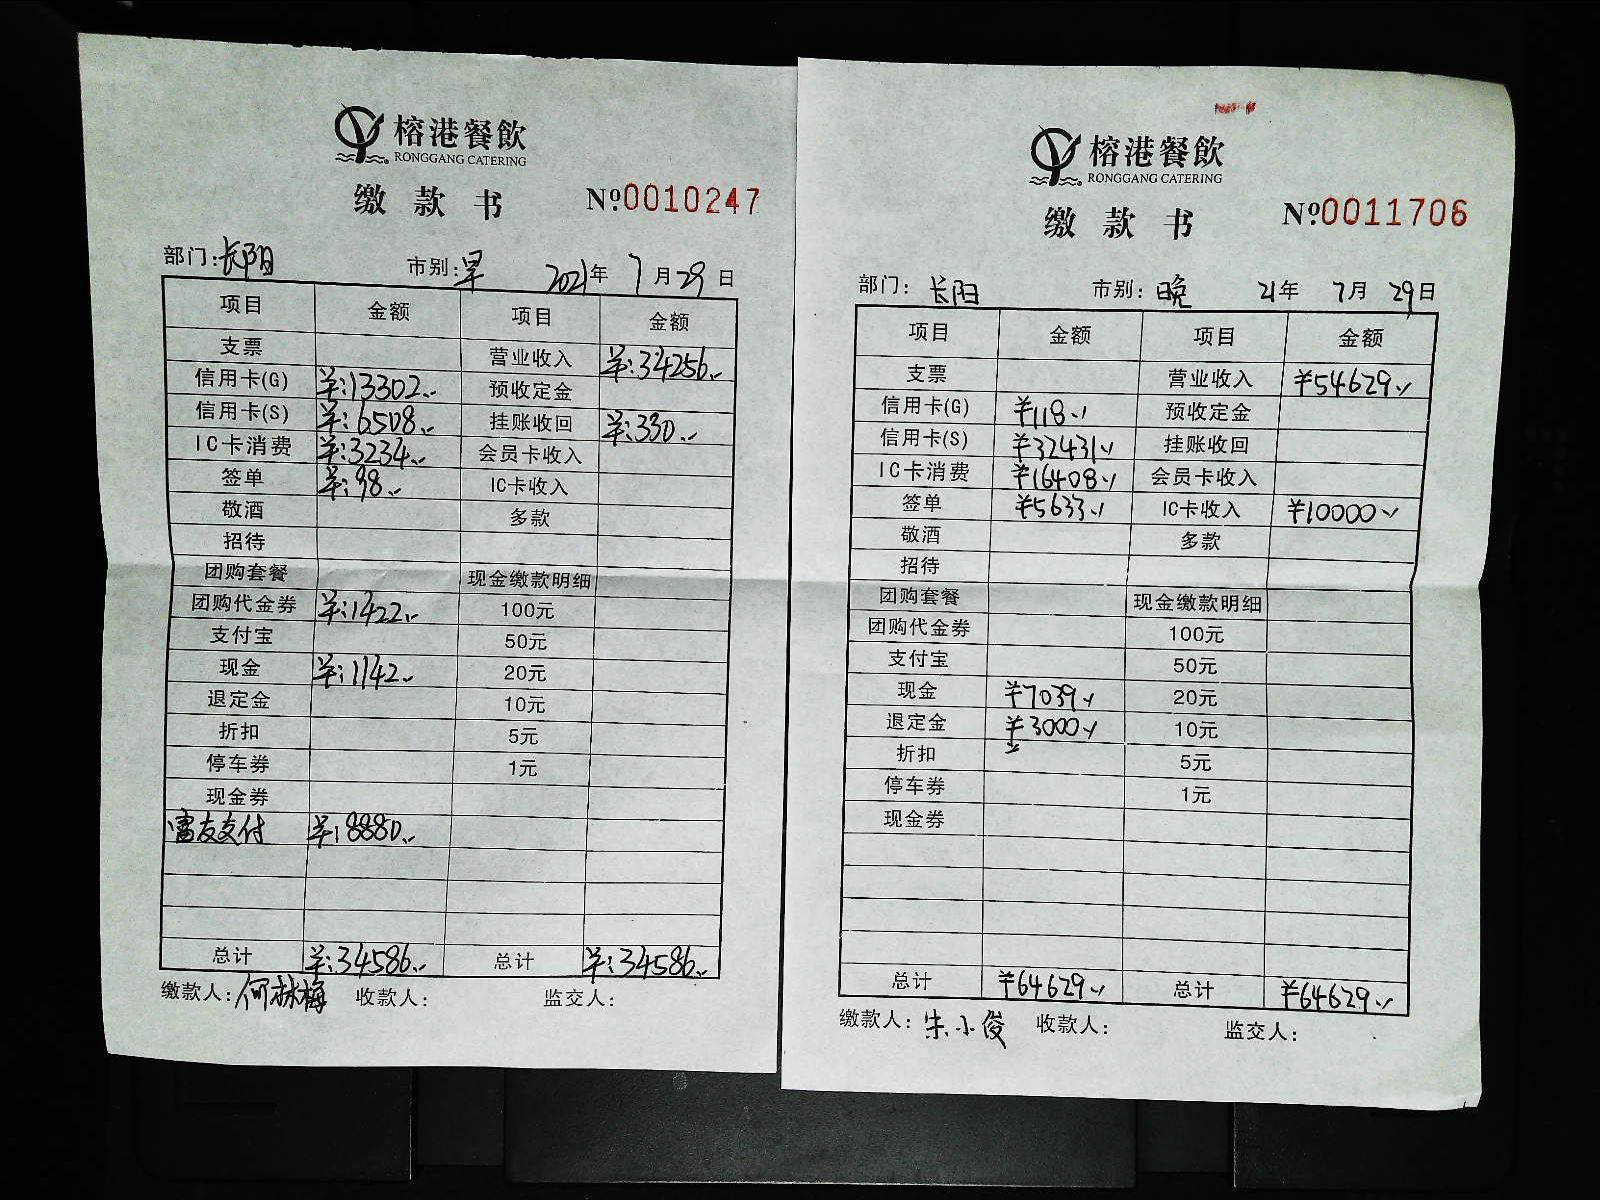 榕港餐飲
RONGGANG CATERING
缴款书 №0010247
部门:长阳 市别:早 2021年7月29日
项目 金额 项目 金额
支票 营业收入 ¥:34256
信用卡(G) ¥:13302 预收定金
信用卡(S) ¥:6508 挂账收回 ¥:330
IC卡消费 ¥:3234 会员卡收入
签单 ¥:98 IC卡收入
敬酒 多款
招待
团购套餐 现金缴款明细
团购代金券 ¥:1422 100元
支付宝 50元
现金 ¥:1142 20元
退定金 10元
折扣 5元
停车券 1元
现金券
富友支付 ¥:8880
总计 ¥:34586 总计 ¥:34586
缴款人:何林梅 收款人: 监交人:
榕港餐飲
RONGGANG CATERING
缴款书 №0011706
部门:长阳 市别:晚 21年7月29日
项目 金额 项目 金额
支票 营业收入 ¥54629
信用卡(G) ¥118 预收定金
信用卡(S) ¥32431 挂账收回
IC卡消费 ¥16408 会员卡收入
签单 ¥5633 IC卡收入 ¥10000
敬酒 多款
招待
团购套餐 现金缴款明细
团购代金券 100元
支付宝 50元
现金 ¥7039 20元
退定金 ¥3000 10元
折扣 5元
停车券 1元
现金券
总计 ¥64629 总计 ¥64629
缴款人:朱小俊 收款人: 监交人: